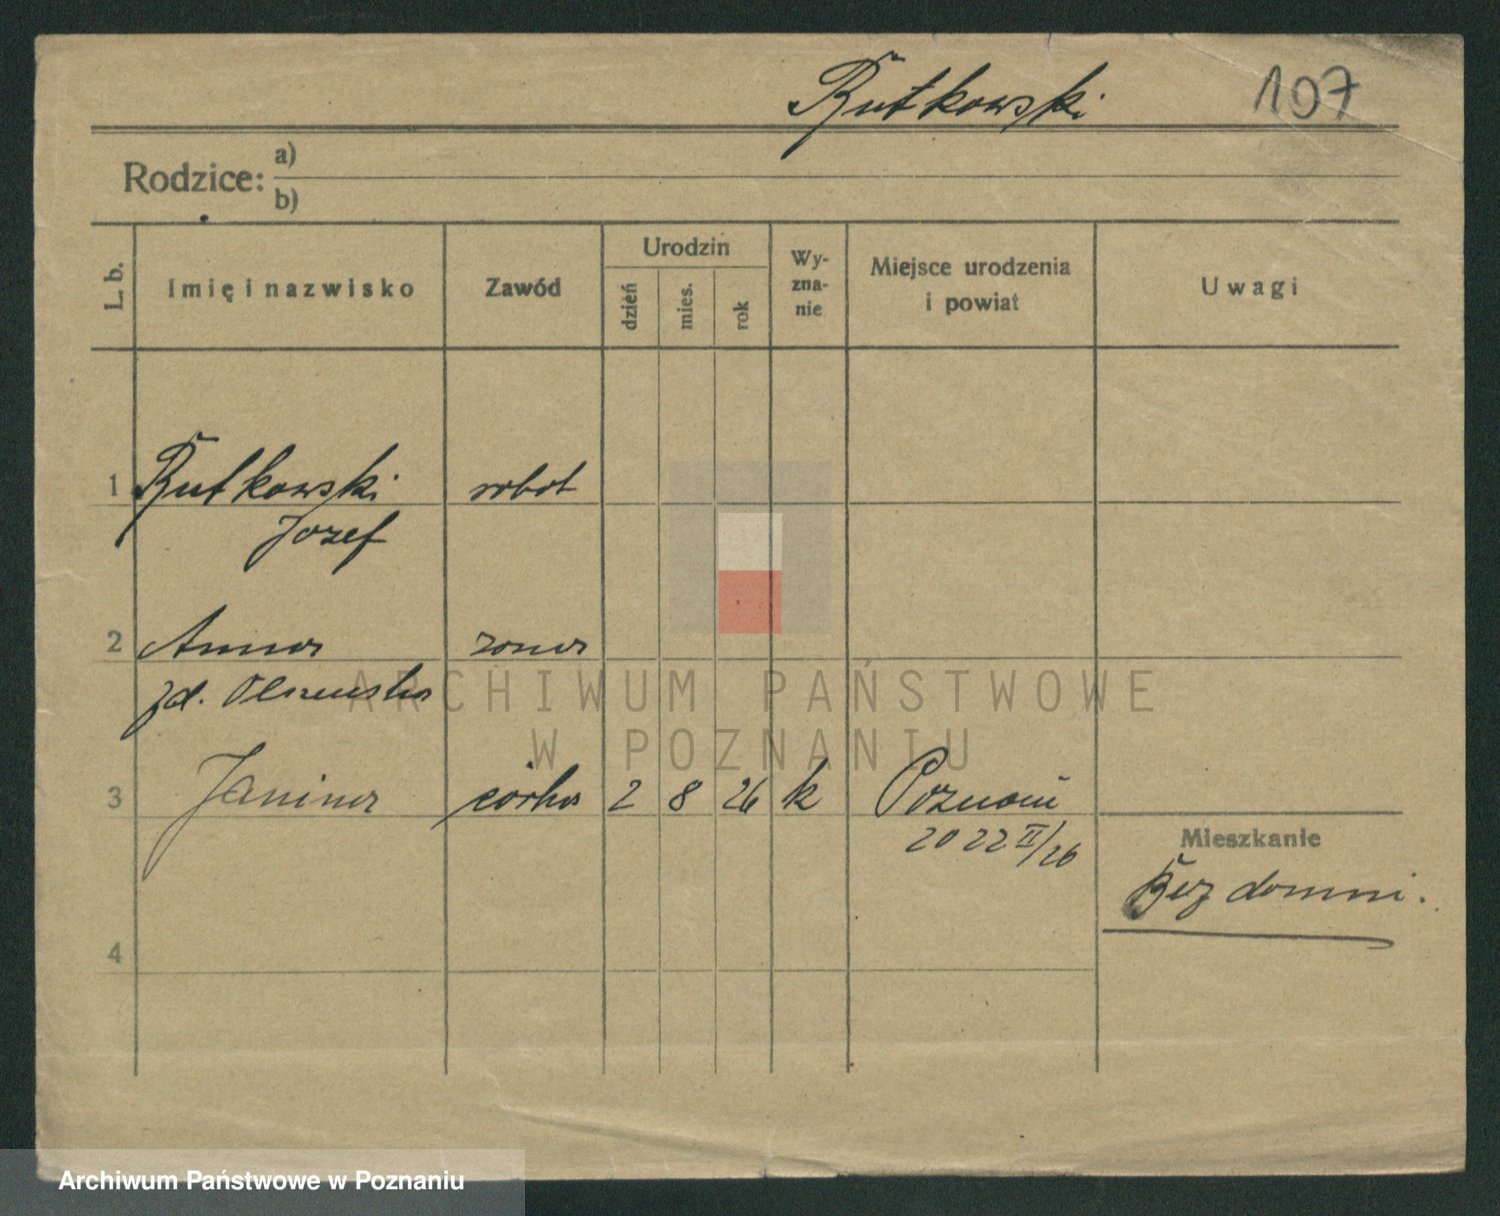 Rutkowski 107
Rodzice: a)
b)
L. b. Imię i nazwisko Zawód Urodzin dzień mies. rok Wy-zna-nie Miejsce urodzenia i powiat Uwagi
1 Rutkowski robot
Jozef
2 Anna zona
zd. Olszewska
ARCHIWUM PAŃSTWOWE
W POZNANIU
3 Janina córka 2 8 26 k Poznań
20 22 II/26
Mieszkanie
Bezdomni.
4
Archiwum Państwowe w Poznaniu